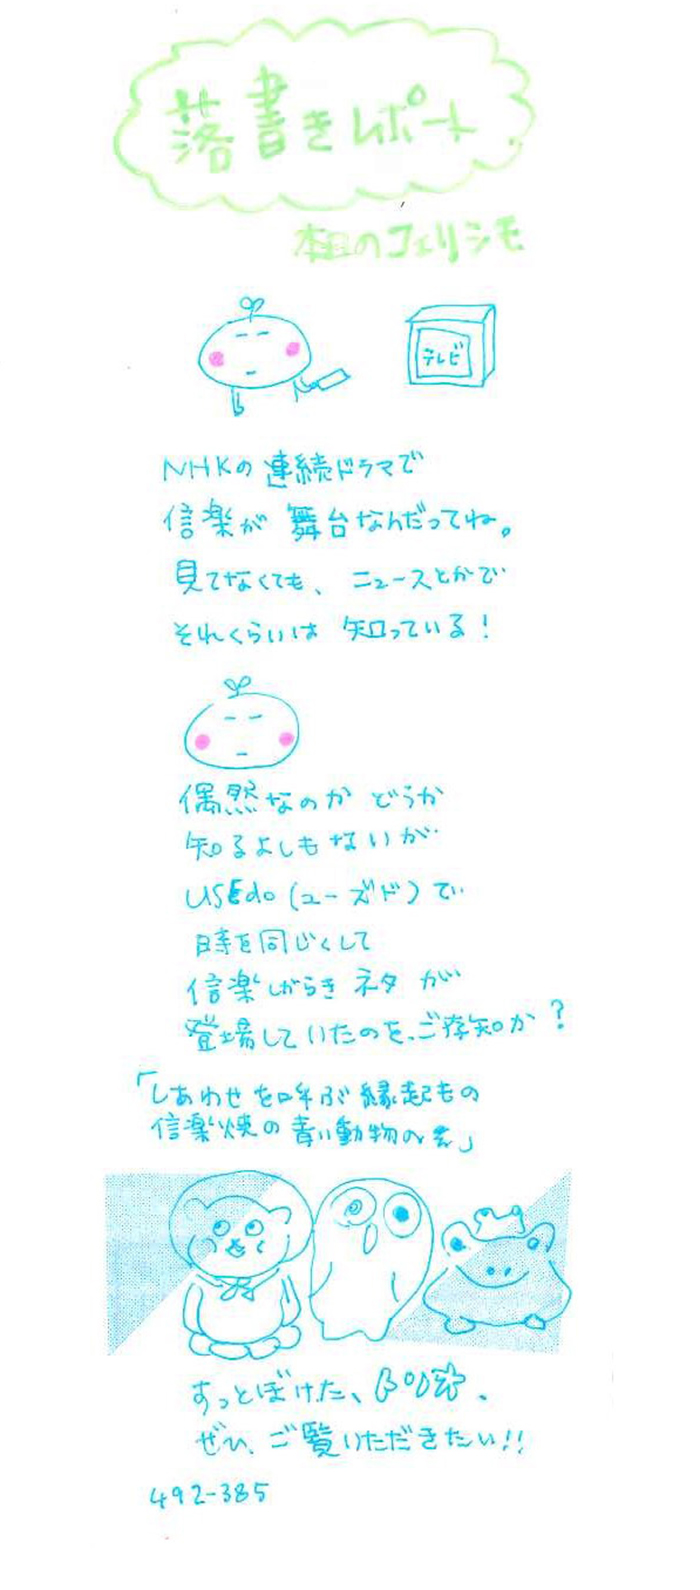 落書きレポート
本日のフェリシモ
テレビ
NHKの連続ドラマで
信楽が舞台なんだってね。
見てなくても、ニュースとかで
それくらいは知っている!
偶然なのかどうか
知るよしもないが
USEdo(ユーズド)で
時を同じくして
信楽しがらきネタが
登場していたのを、ご存知か?
「しあわせを呼ぶ縁起もの
信楽焼の青い動物の会」
すっとぼけた、トリオ、
ぜひ、ご覧いただきたい!!
492-385